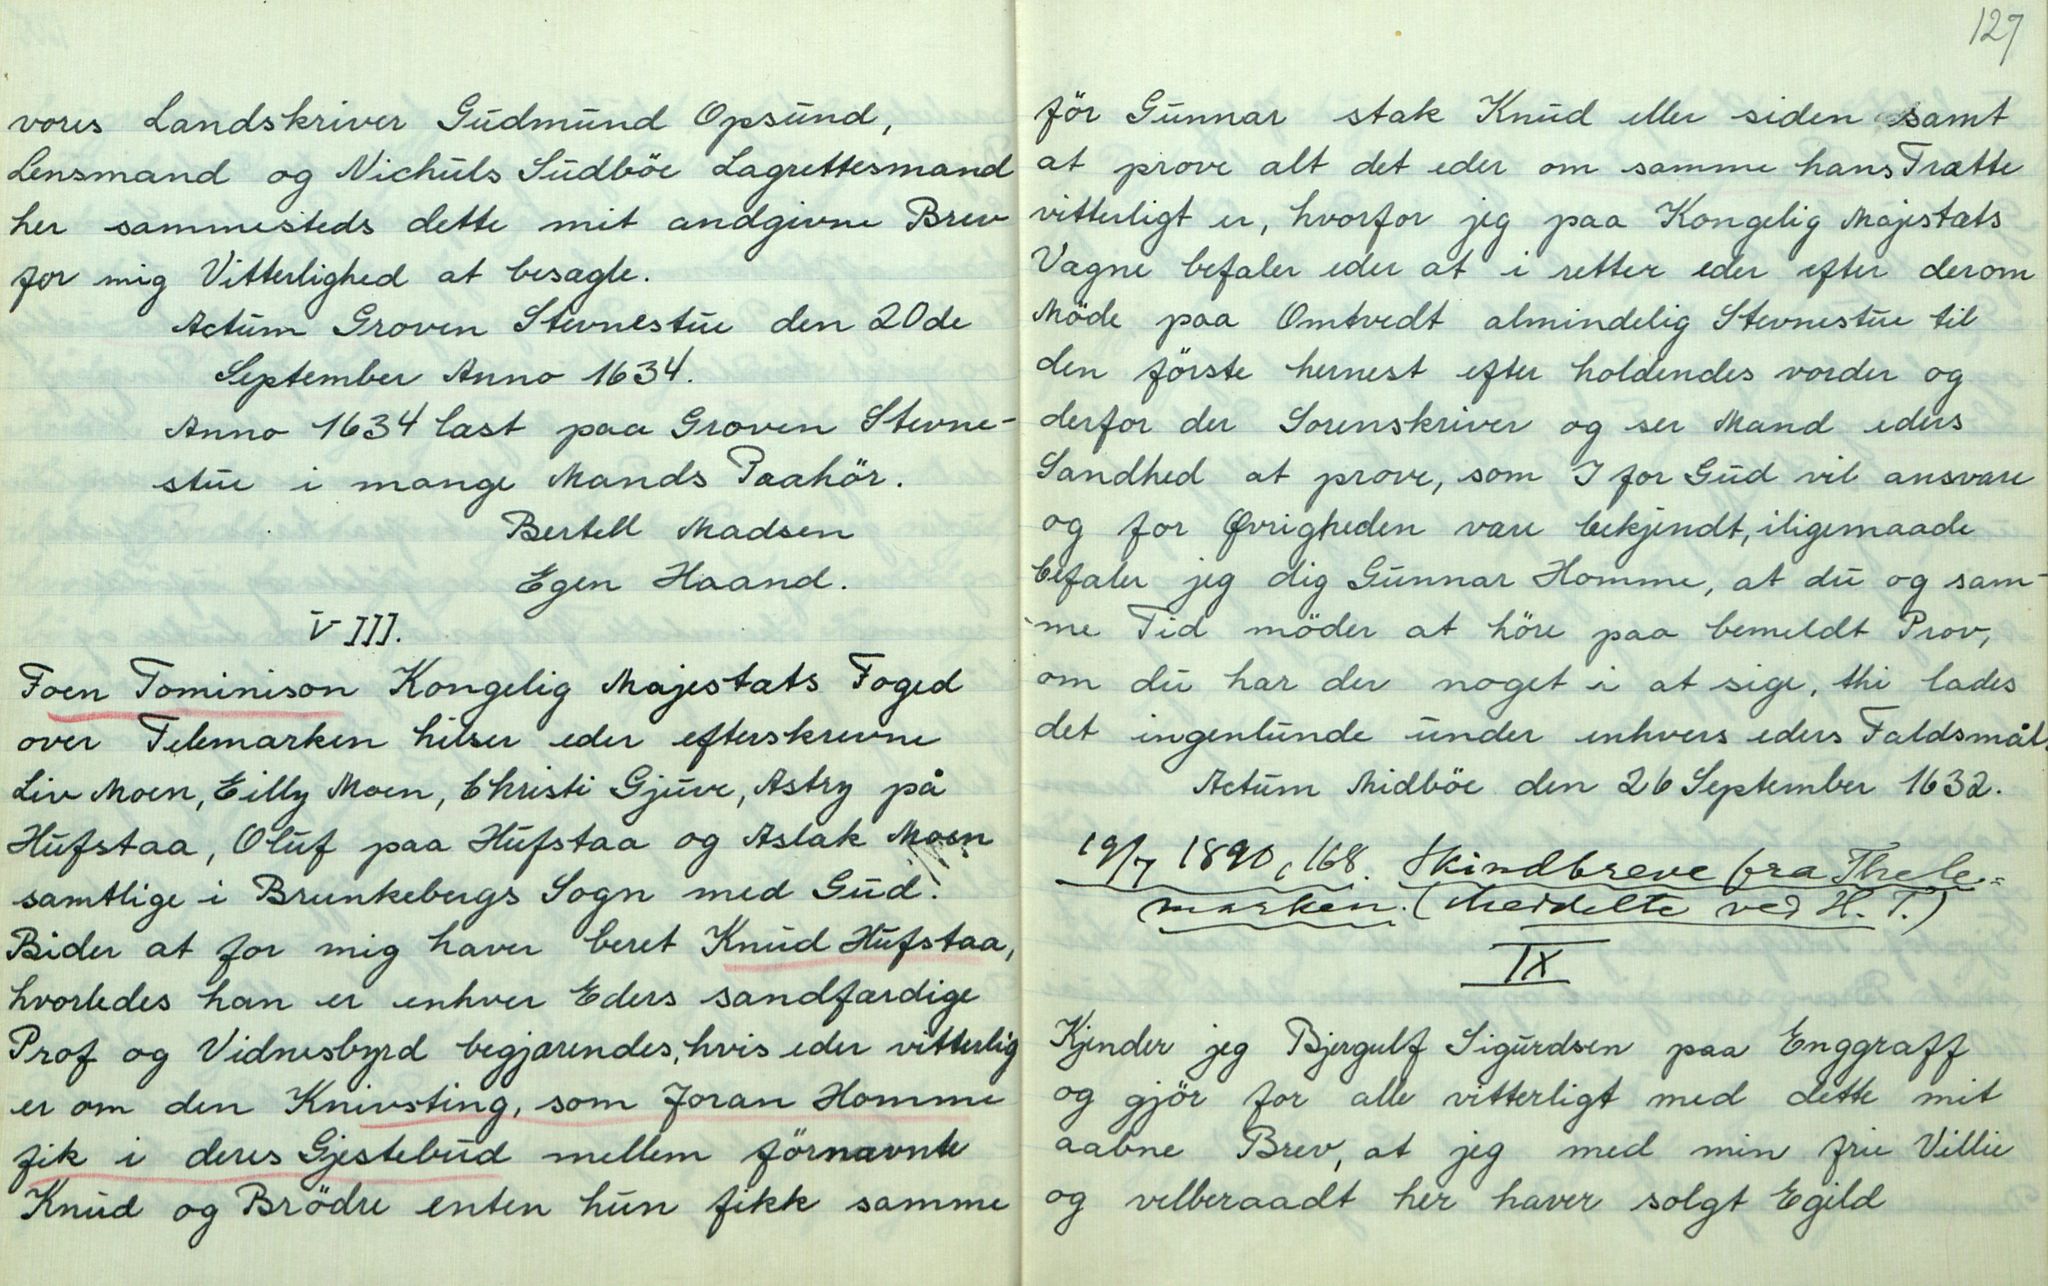 vores Landskriver Gudmund Opsund,
Lensmand og Nichuls Sudböe Lagrettesmand
her sammesteds dette mit andgivne Brev
for mig Vitterlighed at besagle.
Actum Groven Stevnestue den 20de
September Anno 1634.
Anno 1634 last paa Groven Stevne-
stue i mange Mands Paahör.
Bertell Madsen
Egen Haand.
VIII.
Foen Tominison Kongelig Majestats Foged
over Telemarken hilser eder efterskrevne
Liv Moen, Eilly Moen, Christi Gjuve, Astry på
Hufstaa, Oluf paa Hufstaa og Aslak Moen
samtlige i Brunkebergs Sogn med Gud.
Bider at for mig haver beret Knud Hufstaa,
hvorledes han er enhver Eders sandfærdige
Prof og Vidnesbyrd begjærendes, hvis eder vitterlig
er om den Knivsting, som Joran Homme
fik i deres Gjestebud mellem förnavnte
Knud og Brödre enten hun fikk samme
127
för Gunnar stak Knud eller siden samt
at prove alt det eder om samme hans Trætte
vitterligt er, hvorfor jeg paa Kongelig Majestæts
Vagne befaler eder at i retter eder efter derom
Möde paa Omtvedt almindelig Stevnestue til
den förste hernest efter holdendes vorder og
derfor der Sorenskriver og ser Mand eders
Sandhed at prove, som I for Gud vil ansvare
og for Øvrigheden være bekjendt, iligemaade
befaler jeg dig Gunnar Homme, at du og sam-
-me Tid möder at höre paa bemeldt Prov,
om du har der noget i at sige, thi lades
det ingenlunde under enhvers eders Faldsmål.
Actum Midböe den 26 September 1632.
19/7 1890, 168. Skindbreve fra Thele-
marken. (Meddelte ved H. T.)
IX
Kjender jeg Bjergulf Sigurdsen paa Enggraff
og gjör for alle vitterligt med dette mit
aabne Brev, at jeg med min frie Villie
og velberaadt her haver solgt Egild